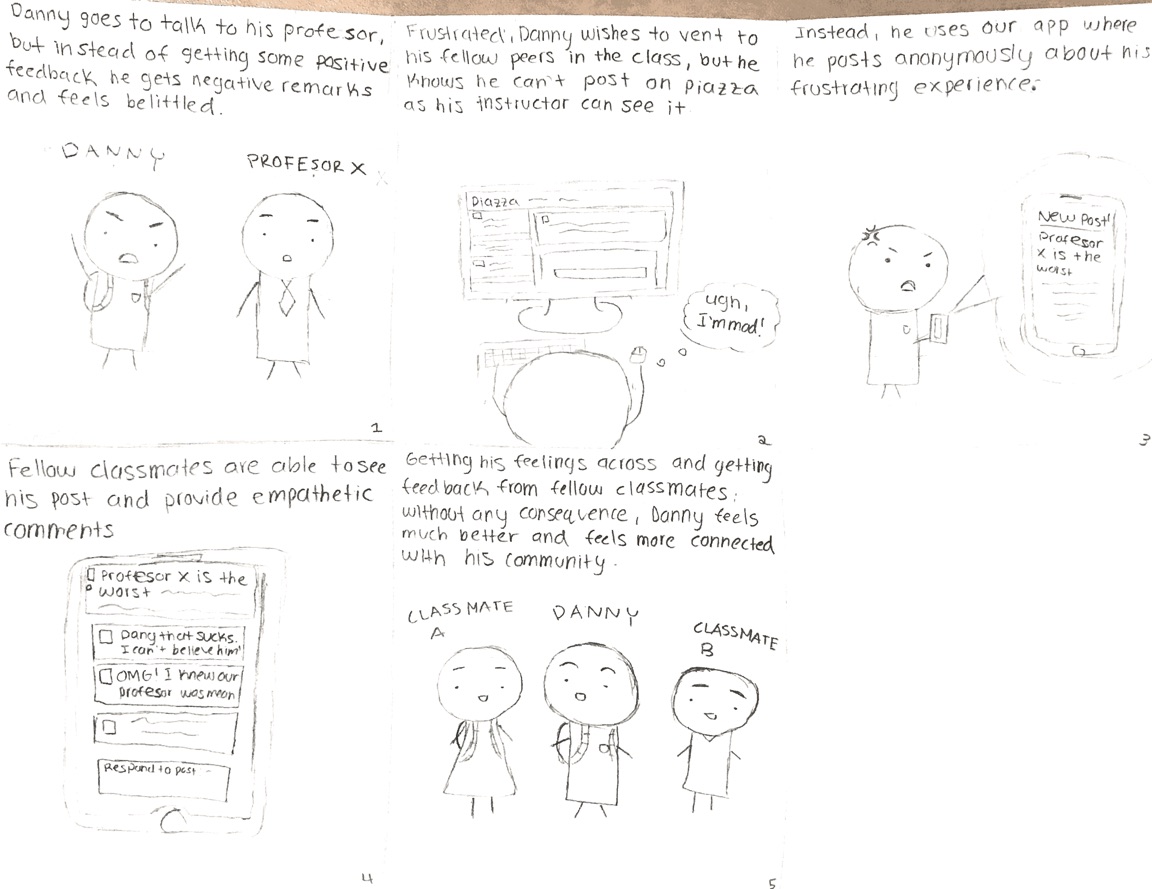 Danny goes to talk to his profesor,
but instead of getting some positive
feedback he gets negative remarks
and feels belittled.
DANNY
PROFESOR X
1
Frustrated, Danny wishes to vent to
his fellow peers in the class, but he
knows he can't post on piazza
as his instructor can see it
Piazza
ugh,
I'm mad!
2
Instead, he uses our app where
he posts anonymously about his
frustrating experience.
New Post!
Profesor
X is the
worst
3
Fellow classmates are able to see
his post and provide empathetic
comments
Profesor X is the
worst
Dang that sucks.
I can't believe him!
OMG! I knew our
profesor was mean
Respond to post
4
Getting his feelings across and getting
feedback from fellow classmates
without any consequence, Danny feels
much better and feels more connected
with his community.
CLASSMATE
A
DANNY
CLASSMATE
B
5